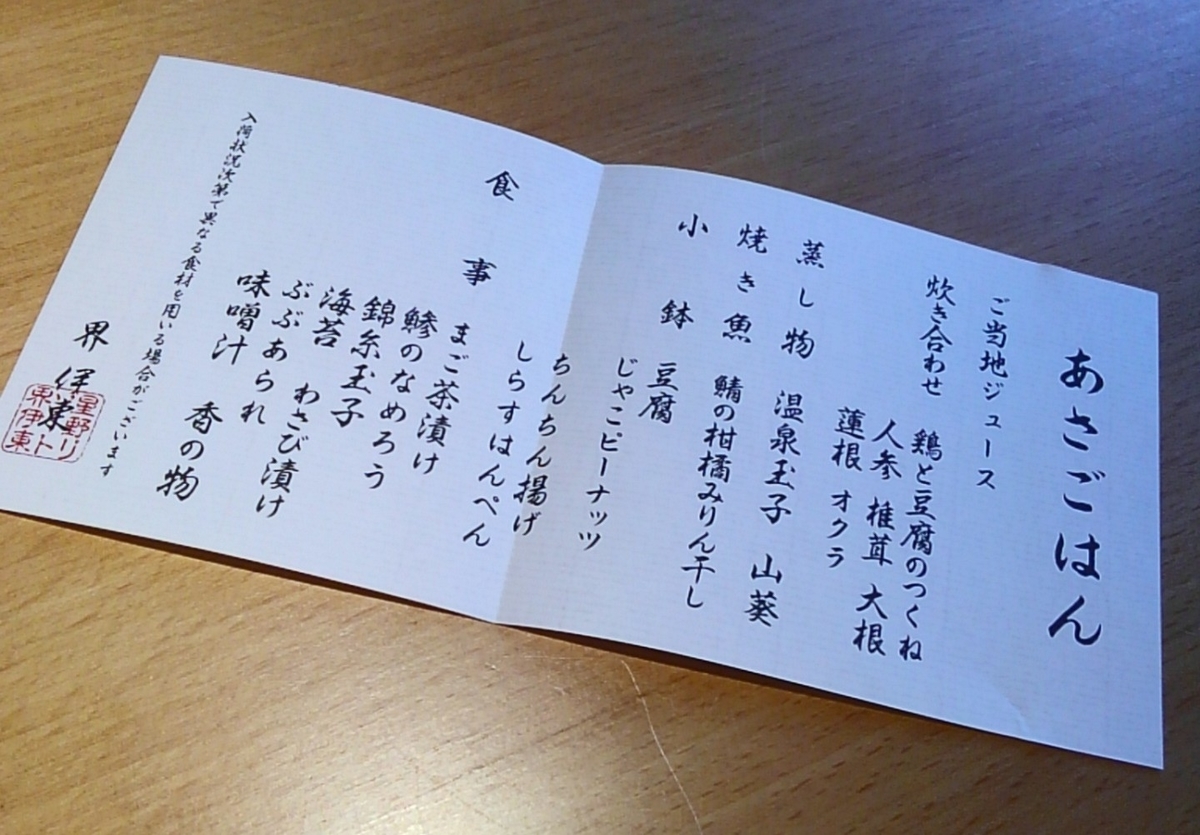 あさごはん
ご当地ジュース
炊き合わせ 鶏と豆腐のつくね
人参 椎茸 大根
蓮根 オクラ
蒸し物 温泉玉子 山葵
焼き魚 鯖の柑橘みりん干し
小鉢 豆腐
じゃこピーナッツ
ちんちん揚げ
しらすはんぺん
食事 まご茶漬け
鯵のなめろう
錦糸玉子
海苔
ぶぶあられ わさび漬け
味噌汁 香の物
入荷状況次第で異なる食材を用いる場合がございます
界 伊東
星野リ
ト
界伊東